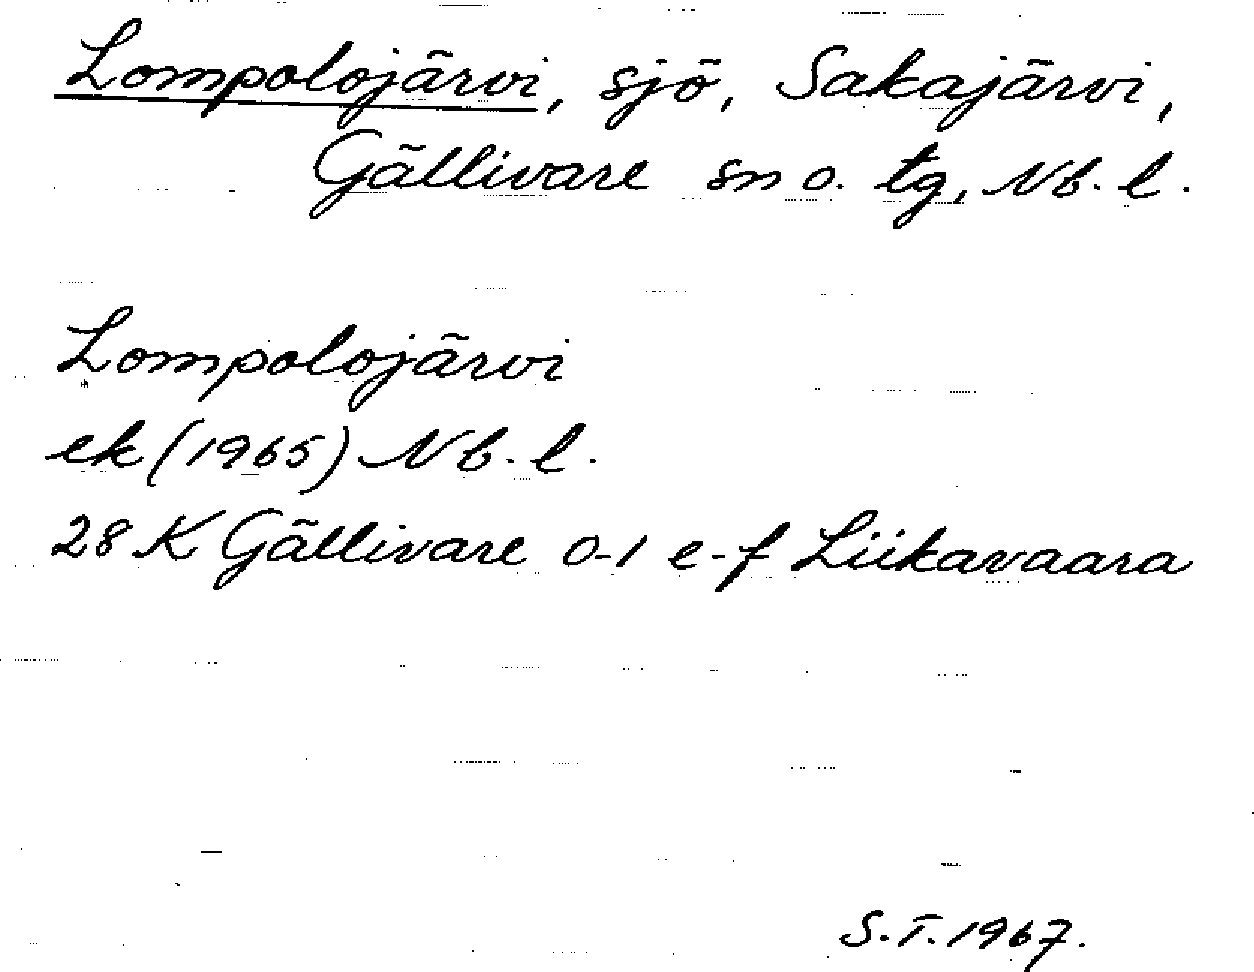 Lompolojärvi, sjö, Sakajärvi,
Gällivare sn o. tg, Nb. l.
Lompolojärvi
ek (1965) Nb. l.
28 K Gällivare 0-1 e-f Liikavaara
S.T. 1967.